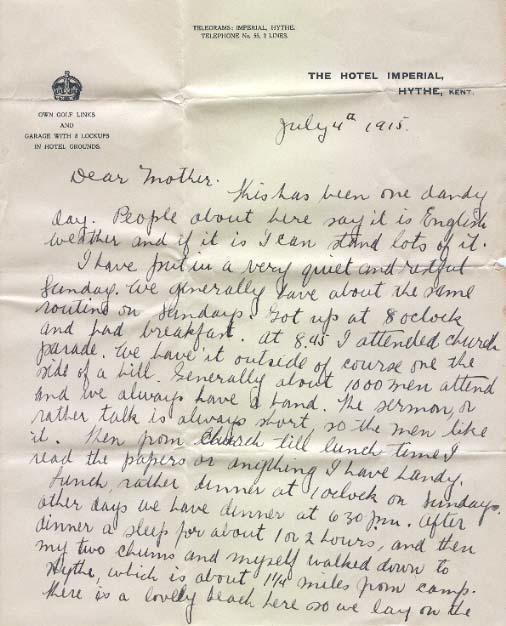 TELEGRAMS: IMPERIAL, HYTHE.
TELEPHONE No. 55, 2 LINES.
THE HOTEL IMPERIAL,
HYTHE, KENT.
OWN GOLF LINKS
AND
GARAGE WITH 8 LOCKUPS
IN HOTEL GROUNDS.
July 4th 1915.
Dear Mother.
This has been one dandy
day. People about here say it is English
weather and if it is I can stand lots of it.
I have put in a very quiet and restful
Sunday. We generally have about the same
routine on Sundays. Got up at 8 oclock
and had breakfast. At 8.45 I attended church
parade. We have it outside of course one the
side of a hill. Generally about 1000 men attend
and we always have a band. The sermon, or
rather talk is always short, so the men like
it. Then from church till lunch time I
read the papers or anything I have handy.
Lunch, rather dinner at 1 oclock on Sundays,
other days we have dinner at 6 30 pm. After
dinner a sleep for about 1 or 2 hours, and then
my two chums and myself walked down to
Hythe, which is about 1¼ miles from camp.
There is a lovely beach here so we lay on the